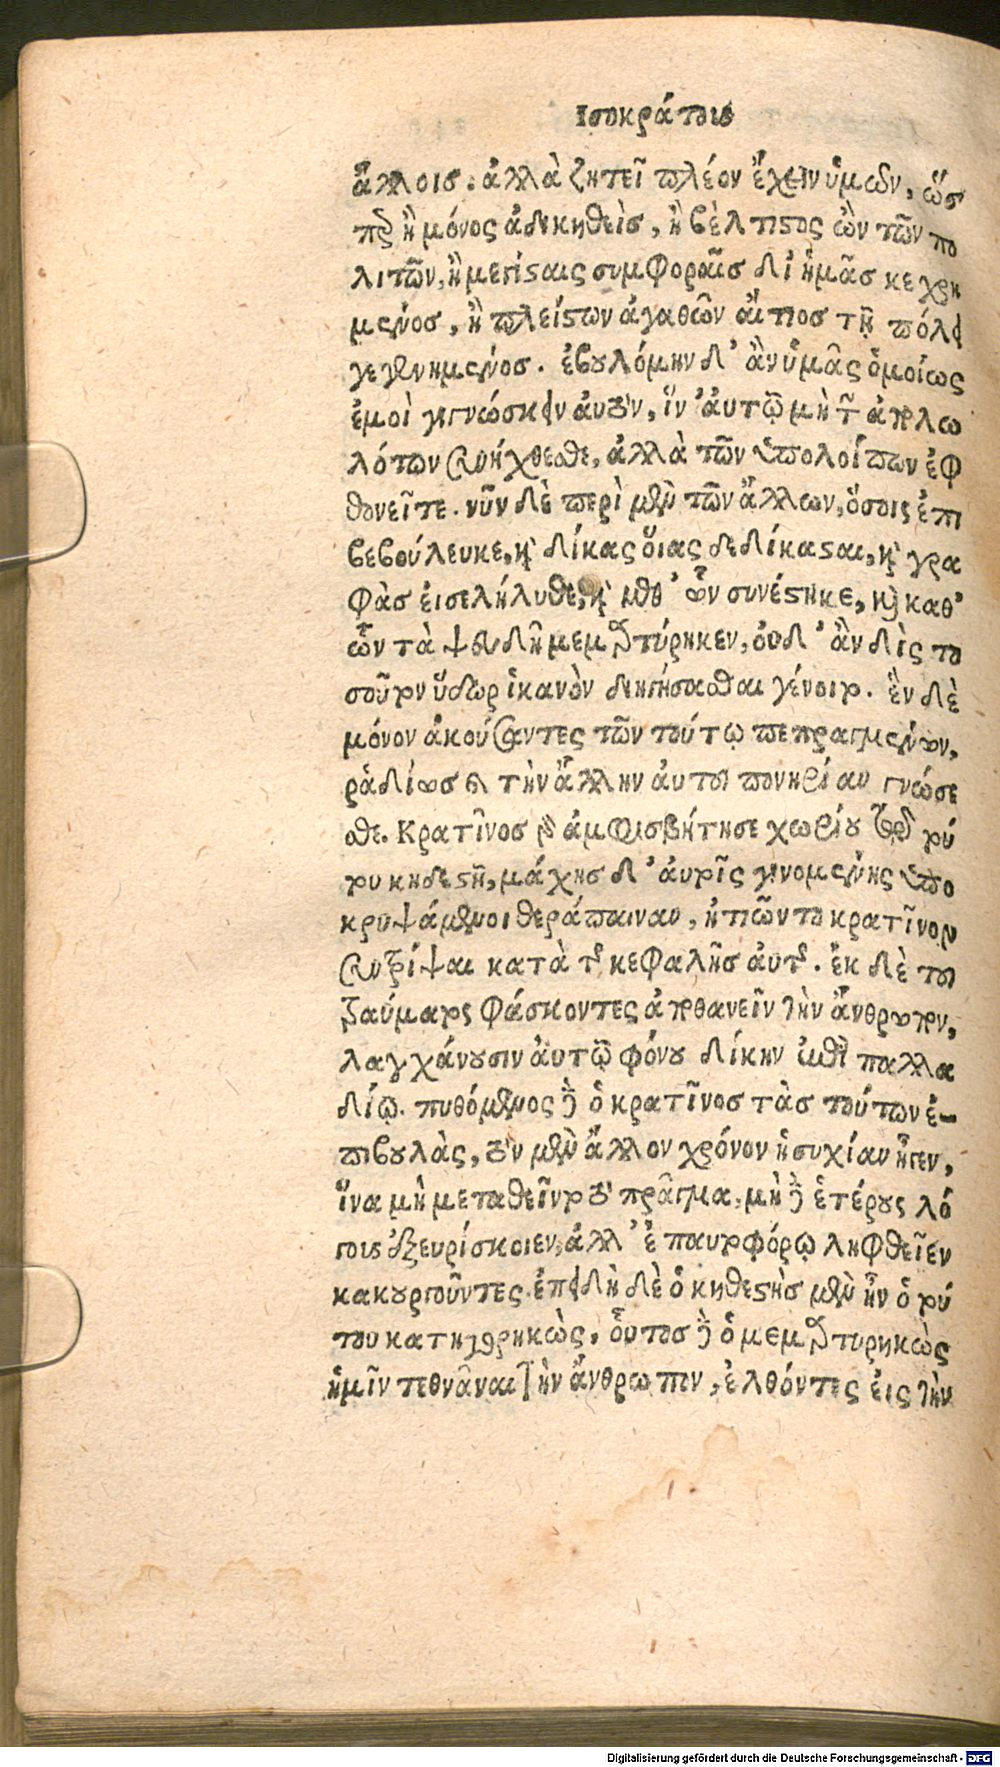 Ισοκράτους
ἄλλοις. ἀλλὰ ζητεῖ πλέον ἔχειν ὑμῶν, ὥσ
περ ἢ μόνος ἀδικηθεὶς, ἢ βέλτιστος ὢν τῶν πο
λιτῶν, ἢ μεγίσταις συμφοραῖς δι' ἡμᾶς κεχρη
μένος, ἢ πλείστων ἀγαθῶν αἴτιος τῇ πόλει
γεγενημένος. ἐβουλόμην δ' ἂν ὑμᾶς ὁμοίως
ἐμοὶ γιγνώσκειν αὐτὸν, ἵν' αὐτῷ μὴ τῶν ἀπολω
λότων συνήχθεσθε, ἀλλὰ τῶν ὑπολοίπων ἐφ
θονεῖτε. νῦν δὲ περὶ μὲν τῶν ἄλλων, ὅσοις ἐπι
βεβούλευκε, καὶ δίκας οἵας δεδίκασται, καὶ γρα
φὰς εἰσελήλυθε, καὶ μεθ' ὧν συνέστηκε, καὶ καθ'
ὧν τὰ ψευδῆ μεμαρτύρηκεν, οὐδ' ἂν δὶς το
σοῦτον ὕδωρ ἱκανὸν διηγήσασθαι γένοιτο. ἓν δὲ
μόνον ἀκούσαντες τῶν τούτῳ πεπραγμένων,
ῥᾳδίως καὶ τὴν ἄλλην αὐτοῦ πονηρίαν γνώσε
σθε. Κρατῖνος γὰρ ἀμφισβήτησε χωρίου τῷ τού
του κηδεστῇ, μάχης δ' αὐτοῖς γενομένης ὑπο
κρυψάμενοι θεράπαιναν, ᾐτιῶντο κρατῖνον
συντρίψαι κατὰ τῆς κεφαλῆς αὐτῆς. ἐκ δὲ τοῦ
τραύματος φάσκοντες ἀποθανεῖν τὴν ἄνθρωπον,
λαγχάνουσιν αὐτῷ φόνου δίκην ἐπὶ παλλα
δίῳ. πυθόμενος δὲ ὁ κρατῖνος τὰς τούτων ἐ-
πιβουλὰς, τὸν μὲν ἄλλον χρόνον ἡσυχίαν ἦγεν,
ἵνα μὴ μεταθεῖντο τὸ πρᾶγμα, μὴ δὲ ἑτέρους λό
γους ἐξευρίσκοιεν, ἀλλ' ἐπ αυτοφόρῳ ληφθεῖεν
κακουργοῦντες. ἐπειδὴ δὲ ὁ κηδεστὴς μὲν ἦν ὁ τού
του κατηγορηκὼς, οὗτος δὲ ὁ μεμαρτυρηκὼς
ἡμῖν τεθνᾶναι τὴν ἄνθρωπον, ἐλθόντες εἰς τὴν
Digitalisierung gefördert durch die Deutsche Forschungsgemeinschaft - DFG